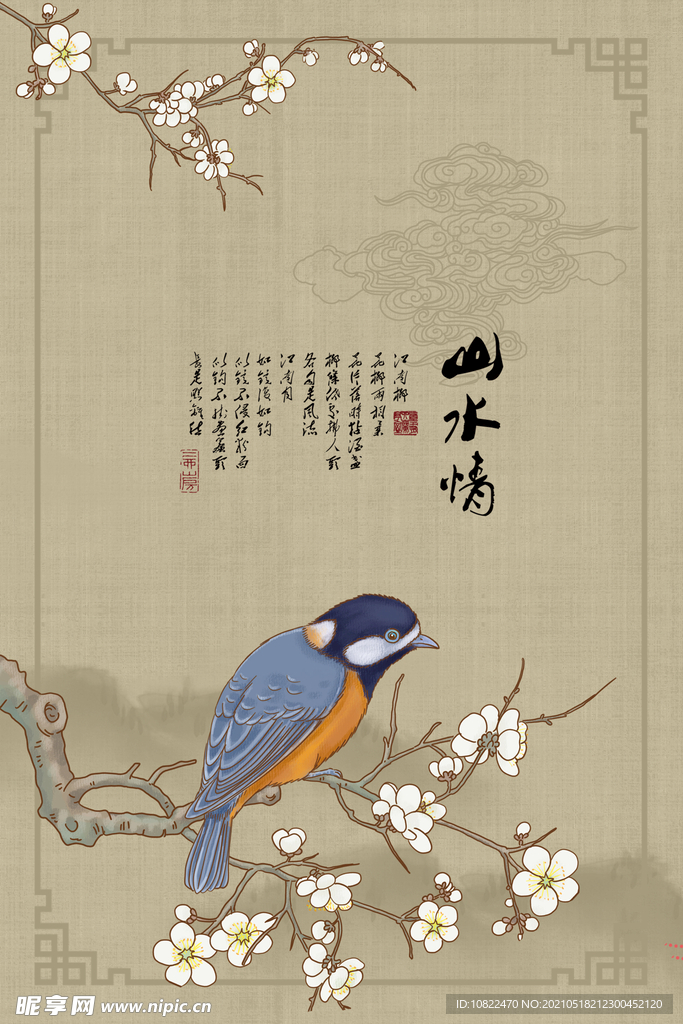 山水情
江南柳
花柳两相柔
花片落时黏酒盏
柳条低处拂人头
各自是风流
江南月
如镜复如钩
似镜不侵红粉面
似钩不挂画帘头
长是照离愁
昵享网 www.nipic.cn
ID:10822470 NO:20210518212300452120